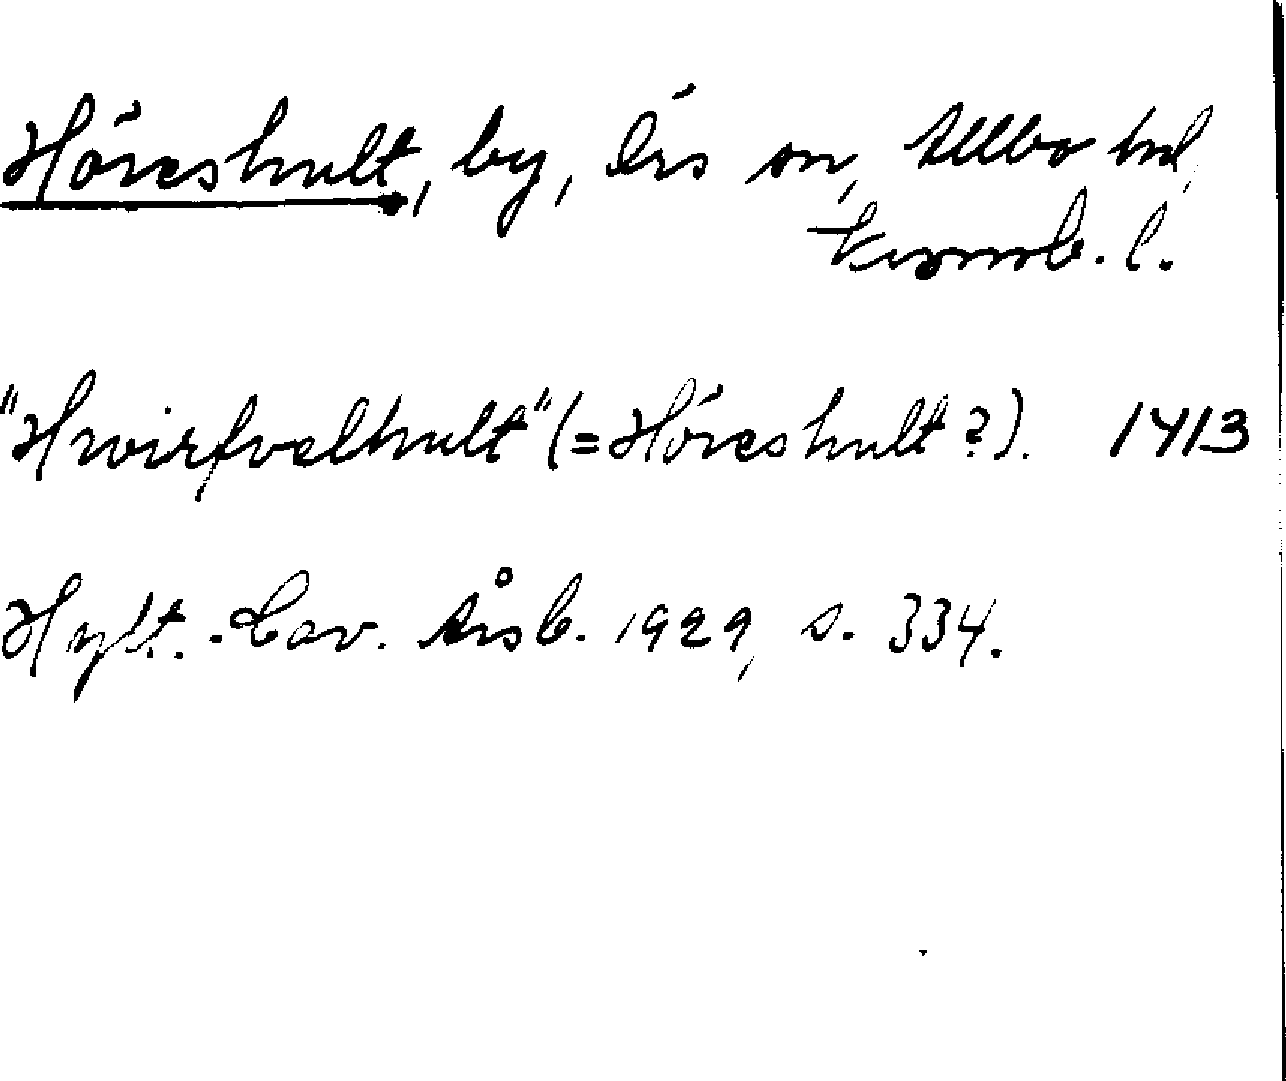 Höreshult, by, Örs sn, Allbo hd,
Kronob. l.
"Hwirfvelhult" (=Höreshult?). 1413
Hylt.-Cav. Årsb. 1929, s. 334.